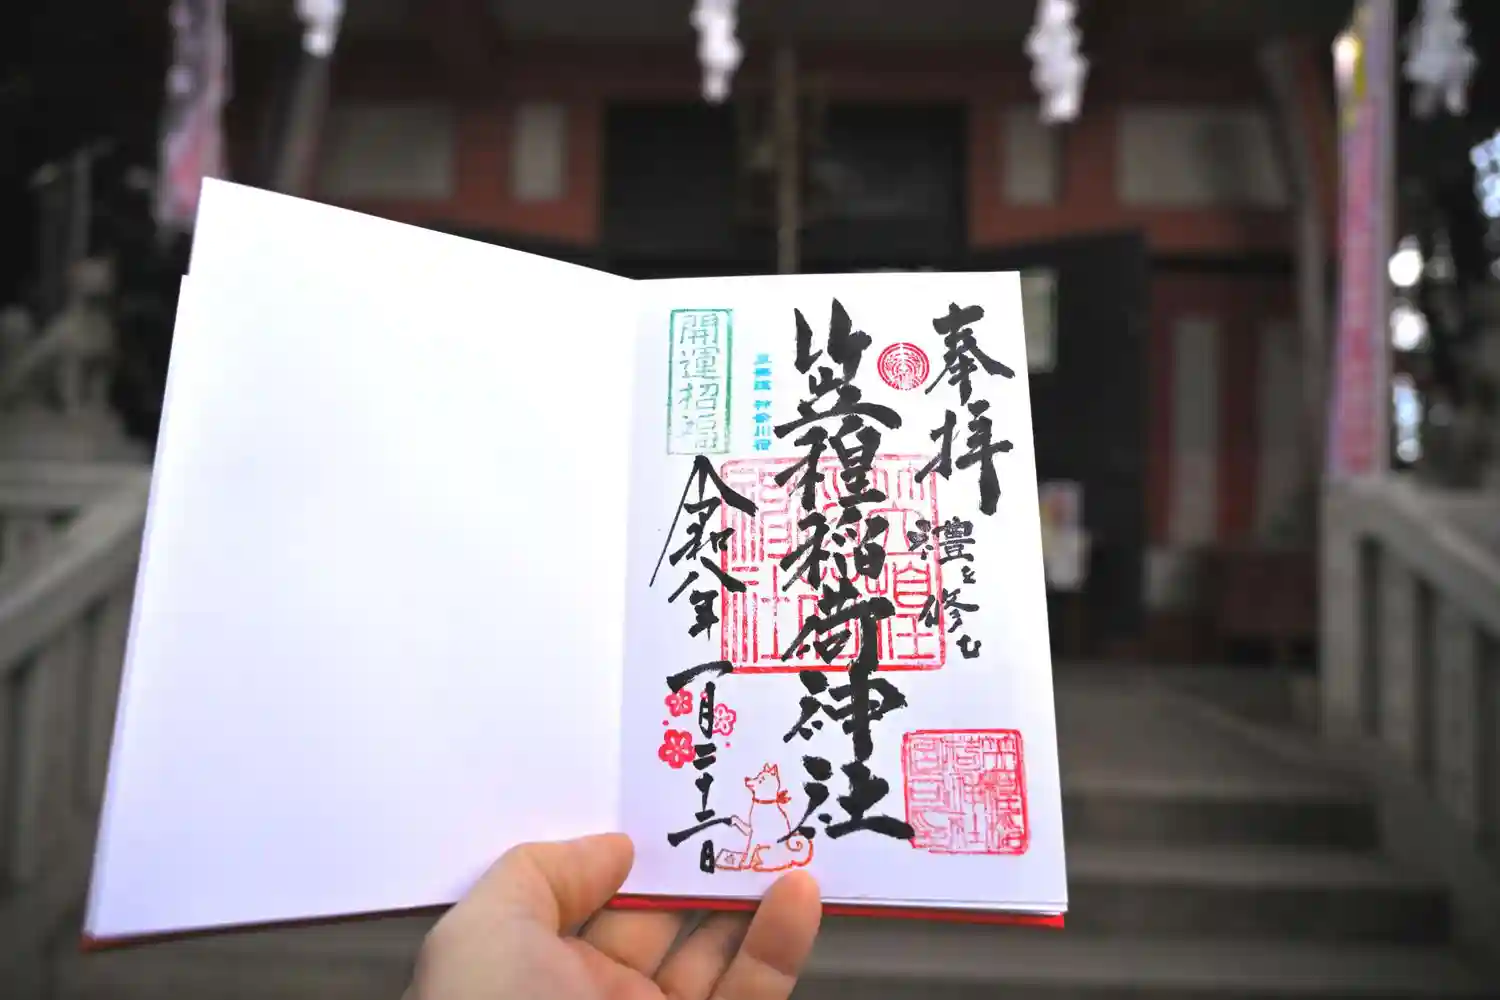 奉拝
禮を修む
笠䅣稲荷神社
東海道 神奈川宿
開運招福
令和八年
一月二十三日